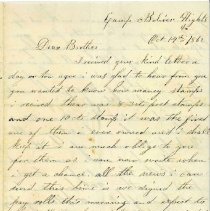 Camp Bolivar Heights
Oct 19th 1862
Dear Brother
I received your kind letter a
day or two ago i was glad to hear from you
you wanted to know how money stamps
i recived there was 3 ct post stamps
and one 10 ct stamp it was the first
one of them i ever owned and i shall
keep it i am much oblige to you
for them as i can now write when
i get a chance all the news i can
send this time is we signed the
pay rolls this morning and expect to